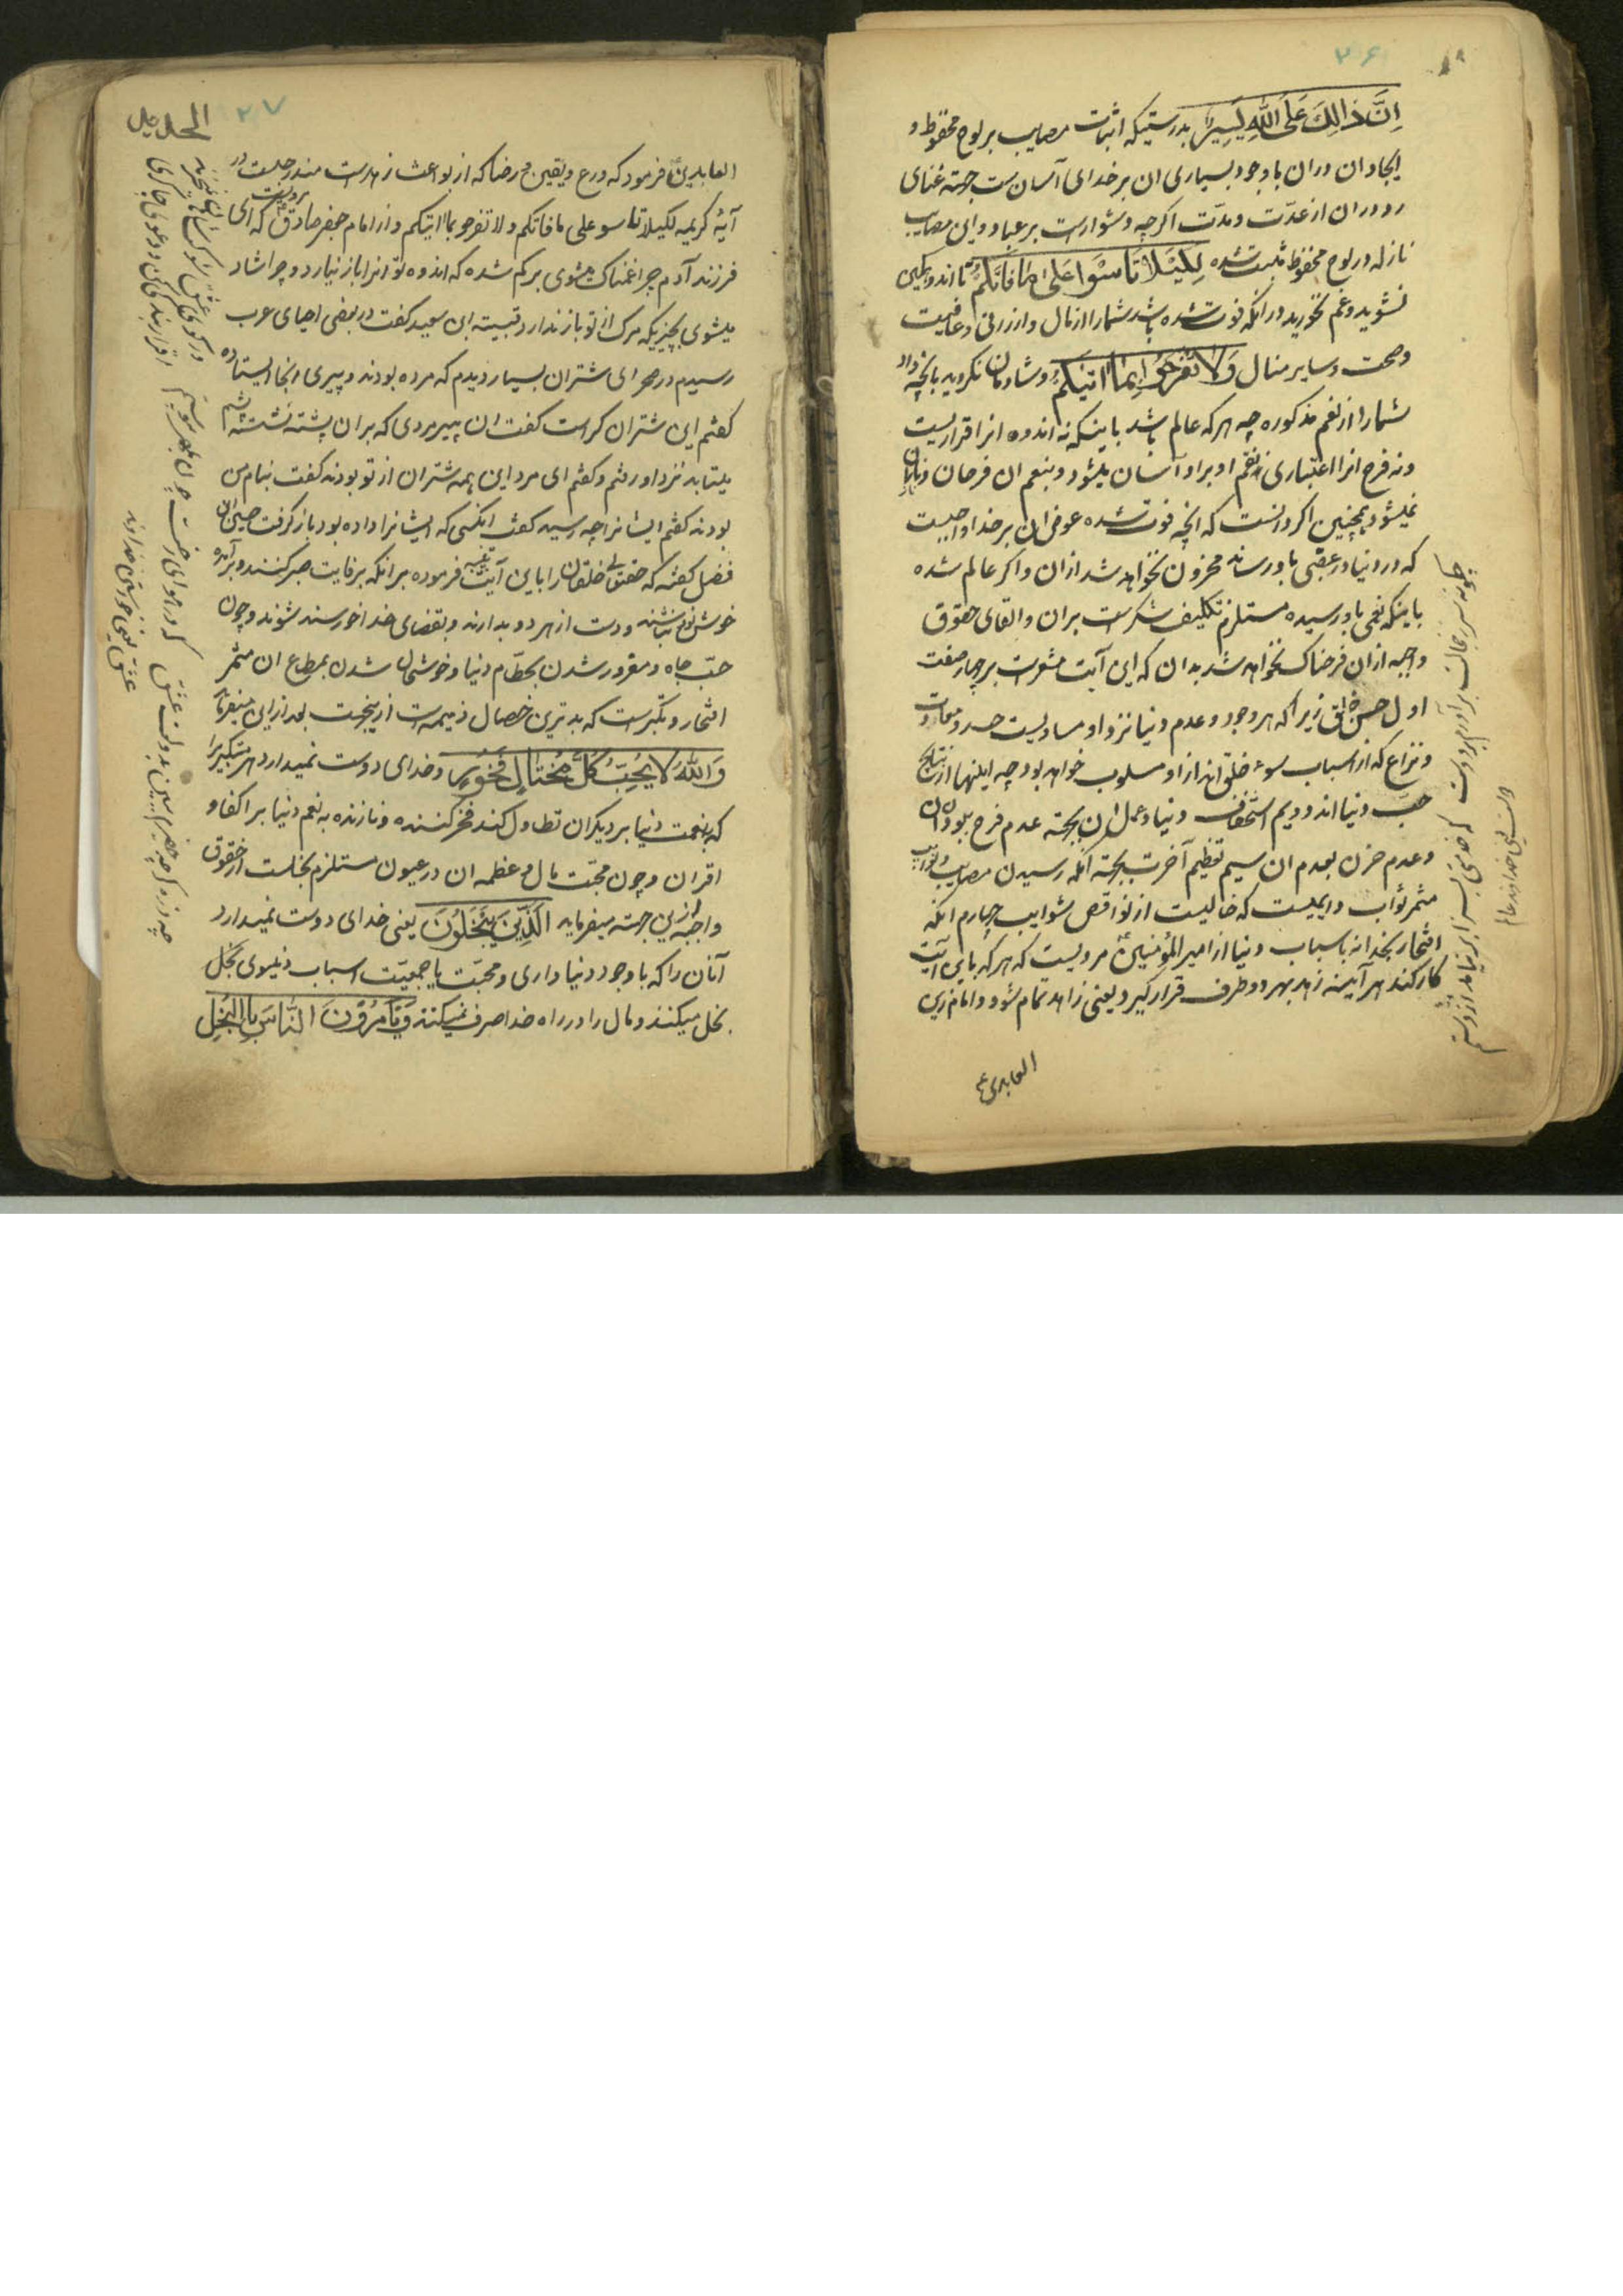 ۲۶
اِنَّ ذَالِكَ عَلَى اللّٰهِ یَسِیرٌ بدرستیکه اثبات مصایب بر لوح محفوظ و
ایجاد ان دران باوجود بسیاری ان بر خدای آسان ست جهة غنای
او دران از عدّت و مدّت اکرچه دشوارست بر عباد و این مصایب
نازله در لوح محفوظ ثبت شده لِكَیْلَا تَاسَوْا عَلىٰ مَا فَاتَكُمْ تا اندوهکین
نشوید و غم نخورید در انکه فوت شده باشد شما را از مال و از رزق و عافیت
و صحت و سایر منال وَلَا تَفْرَحُوا بِمَا اٰتَیٰكُمْ و شادمان نکردید بانچه داد
شما را از نعم مذکوره چه هرکه عالم باشد باینکه نه اندوه انرا قراریست
و نه فرح انرا اعتباری نقم او برو آسان میشود و بنعم ان فرحان و نازان
نمیشود همچنین اکر دانست که انچه فوت شده عوض ان بر خدا واجبست
که در دنیا و در عقبی باو رساند محزون نخواهد شد ازان و اکر عالم شده
باینکه نعمی باو رسیده مستلزم تکلیف شکرست بران و القای حقوق
واجبه ازان فرحناک نخواهد شد بدان که این آیت مشعرست بر چهار صفت
اول حسن خلق زیرا که هر وجود و عدم دنیا نزد او مساویست حسد و معادات
و نزاع که از اسباب سوء خلق اند از او مسلوب خواهد بود چه اینها از نتایج
حبّ دنیا اند دویم استخفاف دنیا و اهل ان بجهة عدم فرح بوجدان
و عدم حزن بعدم ان سیم تعظیم آخرت بجهة انکه رسیدن مصایب و نوایب
مثمر ثواب دایمیست که خالیست از نواقص شوایب چهارم انکه
افتخار بخدا نه باسباب دنیا از امیر المؤمنین ع مرویست که هر که باین آیت
کار کند هر آینه زهد بهر دو طرف قرار کیرد یعنی زاهد تمام شود و امام زین
العابدین ع
۲۷
العابدین ع فرمود که ورع و یقین و رضا که از بواعث زهدست مندرجست در
آیۀ کریمه لکیلا تاسو علی ما فاتکم و لا تفرحو بما اتیکم و از امام جعفر صادق ع مرویست که ای
فرزند آدم چرا غمناک میشوی بر کم شده که اندوه تو انرا باز نیارد و چرا شاد
میشوی بچیزیکه مرک از تو باز ندارد و قتیبة ابن سعید کفت در بعضی احیای عرب
رسیدم در صحرای شتران بسیار دیدم که مرده بودند و پیری انجا ایستاده
کفتم این شتران کراست کفت ان پیر مردی که بران پشته نشسته پشم
میتابد نزد او رفتم و کفتم ای مرد این همه شتران از تو بودند کفت بنام من
بودند کفتم ایشانرا چه رسید کفت انکسی که ایشانرا داده بود باز کرفت
فضل کفته که حقتعالی خلقانرا باین آیت تنبیه فرموده بر انکه بر فایت صبر کنند و بر آمده
خوش نباشند و دست از هر دو بدارند و بقضای خدا خورسند شوند و چون
حبّ جاه و مغرور شدن بحطام دنیا و خوشحال شدن بمطاع ان مثمر
افتخار و تکبرست که بدترین خصال ذمیمه است ازینجهت بعد ازاین میفرماید
وَاللّٰهُ لَا یُحِبُّ كُلَّ مُخْتَالٍ فَخُورٍ و خدای دوست نمیدارد هر متکبر را
که بنعمت دنیا بر دیکران تطاول کند فخر کننده و نازنده به نعم دنیا بر اکفا و
اقران و چون محبّت مال و عظمه ان در عیون مستلزم بخلست از حقوق
واجبه ازین جهته میفرماید اَلَّذِینَ یَبْخَلُونَ یعنی خدای دوست نمیدارد
آنان را که با وجود دنیا داری و محبّت یا جمعیّت اسباب دنیوی بخل
بخل میکنند و مال را در راه خدا صرف نمیکنند وَیَأْمُرُونَ النَّاسَ بِالْبُخْلِ